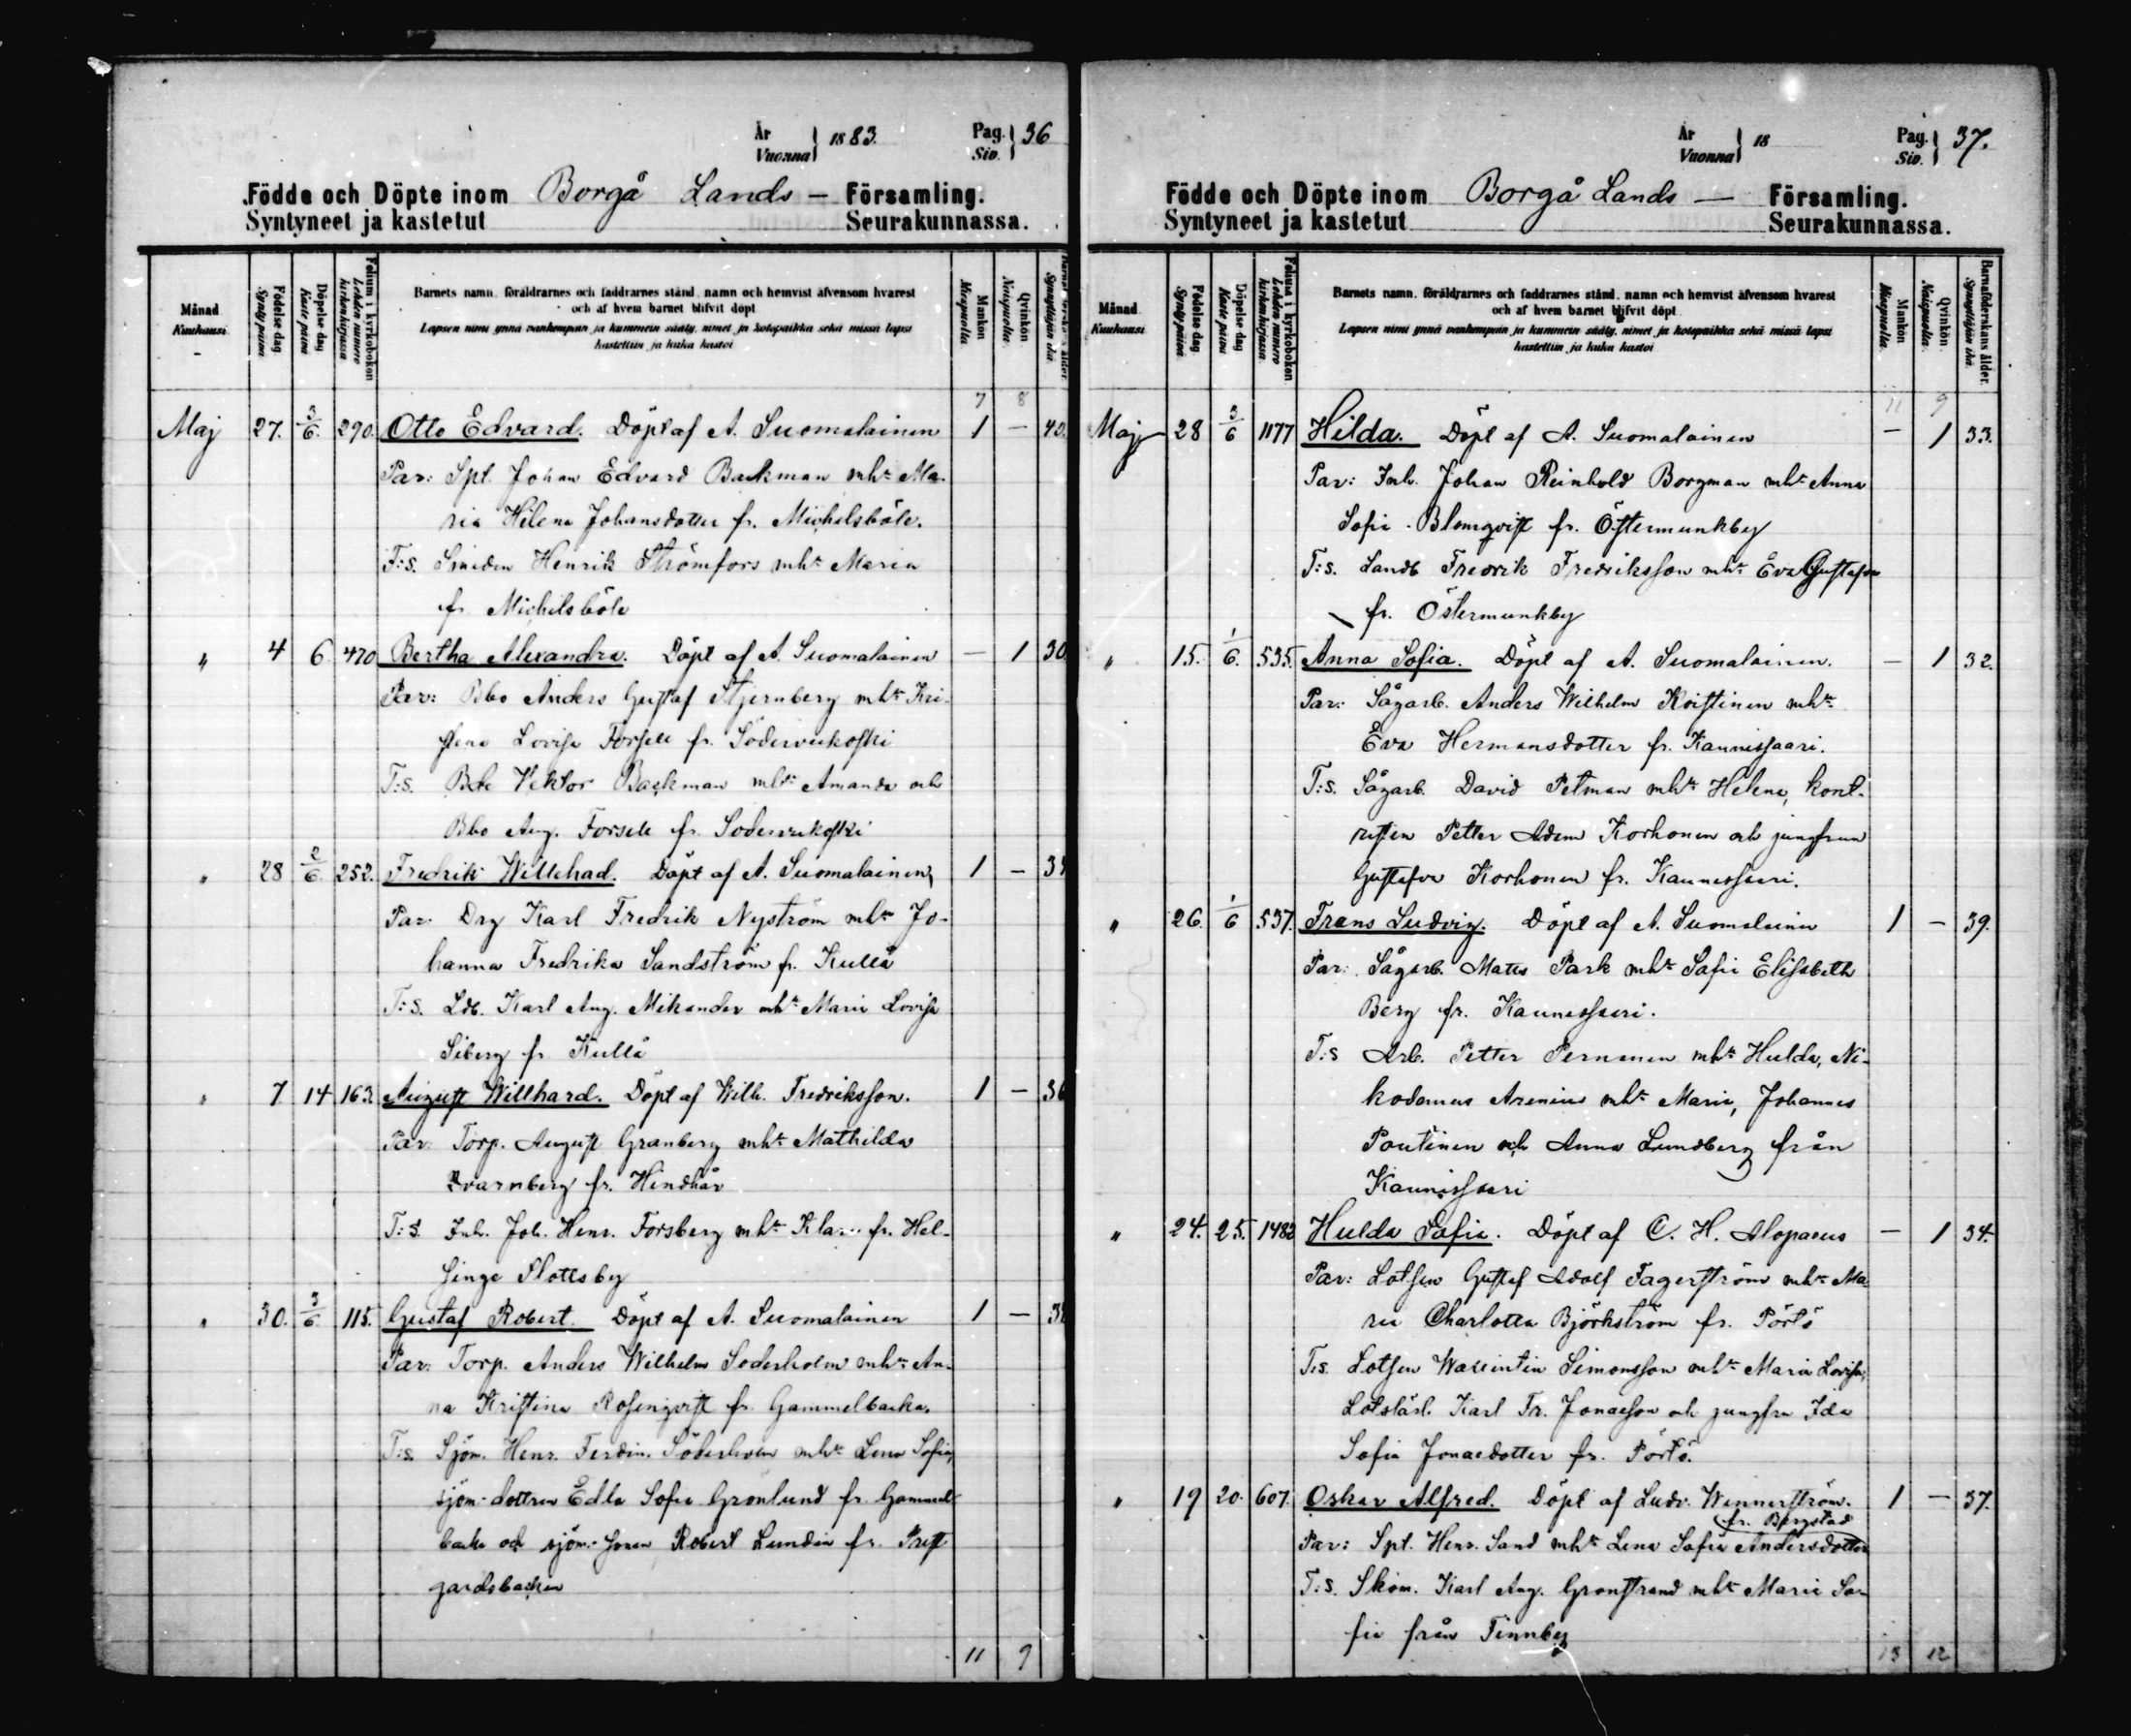 År
Vuonna } 1883. Pag.
Siv. } 36
Födde och Döpte inom Borgå Lands – Församling.
Syntyneet ja kastetut Seurakunnassa.
Månad
Kuukausi
Födelse dag
Synty päivä
Döpelse dag
Kaste päivä
Folium i kyrkobokon
Lehden numero kirkonkirjassa
Barnets namn, föräldrarnes och faddrarnes stånd, namn och hemvist äfvensom hvarest
och af hvem barnet blifvit döpt
Lapsen nimi ynnä vanhempain ja kummein sääty, nimet ja kotopaikka sekä missä lapsi
kastettiin ja kuka kastoi
Mankön
Miespuolia
Qvinkön
Naispuolia
Synnyttäjän ikä
7 8
Maj 27. 3/6. 290. Otto Edvard. Döpt af A. Suomalainen 1 – 40.
Par: Spl. Johan Edvard Backman mhr Ma-
ria Helena Johansdotter fr. Michelsböle.
F:s. Smeden Henrik Strömfors mhr Maria
fr. Michelsböle
" 4 6 470 Bertha Alexandra. Döpt af A. Suomalainen – 1 30.
Par: Bbo Anders Gustaf Stjernberg mhr Kri-
stina Lovisa Forsell fr. Söderveckoski
T:s. Bbo Viktor Backman mhr Amanda och
Bbo Aug. Forsell fr. Söderveckoski
" 28 2/6 252. Fredrik Willehad. Döpt af A. Suomalainen, 1 –
Par. Drg Karl Fredrik Nyström mhr Jo-
hanna Fredrika Sandström fr. Kullå
T:s. Ldb. Karl Aug. Mikander mhr Maria Lovisa
Siberg fr. Kullå
" 7 14 163. August Willhard. Döpt af Wilh. Fredriksson. 1 – 36
Par: Torp. August Granberg mhr Mathilda
Qvarnberg fr. Hindhår
T:s. Inh. Joh. Henr. Forsberg mhr Klara fr. Hel-
singe Slottsby
" 30. 3/6. 115. Gustaf Robert. Döpt af A. Suomalainen 1 –
Par: Torp. Anders Wilhelm Söderholm mhr An-
na Kristina Rosenqvist fr. Gammelbacka.
T:s. Sjöm. Henr. Ferdin. Söderholm mhr Lena Sofia,
sjöm-dottren Edla Sofia Grönlund fr. Gammel-
backa och sjöm.-sonen Robert Lundin fr. Prest
gardsbacken
11 9
År
Vuonna } 18 Pag.
Siv. } 37.
Födde och Döpte inom Borgå Lands — Församling.
Syntyneet ja kastetut Seurakunnassa.
Månad
Kuukausi
Födelse dag
Synty päivä
Döpelse dag
Kaste päivä
Folium i kyrkobokon
Lehden numero kirkonkirjassa
Barnets namn, föräldrarnes och faddrarnes stånd, namn och hemvist äfvensom hvarest
och af hvem barnet blifvit döpt
Lapsen nimi ynnä vanhempain ja kummein sääty, nimet ja kotopaikka sekä missä lapsi
kastettiin ja kuka kastoi
Mankön
Miespuolia.
Qvinkön.
Naispuolia.
Barnaföderskans ålder.
Synnyttäjän ikä.
11 9
Maj 28 3/6 1177 Hilda. Döpt af A. Suomalainen – 1 33.
Par: Inh. Johan Reinhold Borgman mhr Anna
Sofia Blomqvist fr. Östermunkby
T:s. Landb Fredrik Fredriksson mhr Eva Gustafva
fr. Östermunkby
" 15. 1/6. 535. Anna Sofia. Döpt af A. Suomalainen. – 1 32.
Par: Sågarb. Anders Wilhelm Koistinen mhr
Eva Hermansdotter fr. Kaunissaari.
T:s. Sågarb. David Petman mhr Helena, kont-
risten Petter Adam Korhonen och jungfrun
Gustafva Korhonen fr. Kaunissaari.
" 26 1/6 537. Frans Ludvig. Döpt af A. Suomalainen 1 – 39.
Par: Sågarb. Mats Park mhr Sofia Elisabeth
Berg fr. Kaunissaari.
T:s Arb. Petter Pernanen mhr Hulda, Ni-
kodemus Arenius mhr Maria, Johannes
Poutinen och Anna Lundberg från
Kaunissaari
" 24. 25. 1482 Hulda Sofia. Döpt af C. H. Alopaeus – 1 34.
Par: Lotsen Gustaf Adolf Fagerström mhr Ma-
ria Charlotta Björkström fr. Pörtö
T:s. Lotsen Wallentin Simonsson mhr Maria Lovisa,
Lotslärl. Karl Fr. Jonasson och jungfru Ida
Sofia Jonasdotter fr. Pörtö.
" 19 20. 607. Oskar Alfred. Döpt af Ludv. Wennerström. 1 – 37.
fr. Borgstad
Par: Spt. Henr. Sand mhr Lena Sofia Andersdotter
T:s. Skom. Karl Aug. Gronstrand mhr Maria So-
fia från Finnby
13 12